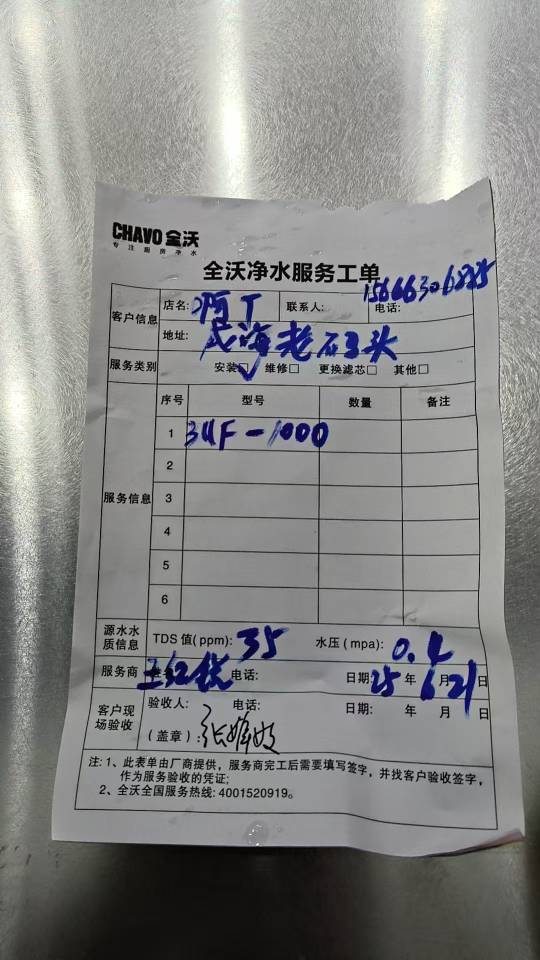 CHAVO 全沃
专注厨房净水
全沃净水服务工单
客户信息 店名: 阿丁 联系人: 电话: 15666306885
地址: 威海老码头
服务类别 安装☐ 维修☐ 更换滤芯☐ 其他☐
服务信息 序号 型号 数量 备注
1 3UF-1000
2
3
4
5
6
源水水质信息 TDS 值(ppm): 35 水压(mpa): 0.4
服务商 电话: 日期: 25 年 6 月 21 日
客户现场验收 验收人: 电话: 日期: 年 月 日
(盖章):
注: 1、此表单由厂商提供，服务商完工后需要填写签字，并找客户验收签字，
作为服务验收的凭证;
2、全沃全国服务热线: 4001520919。